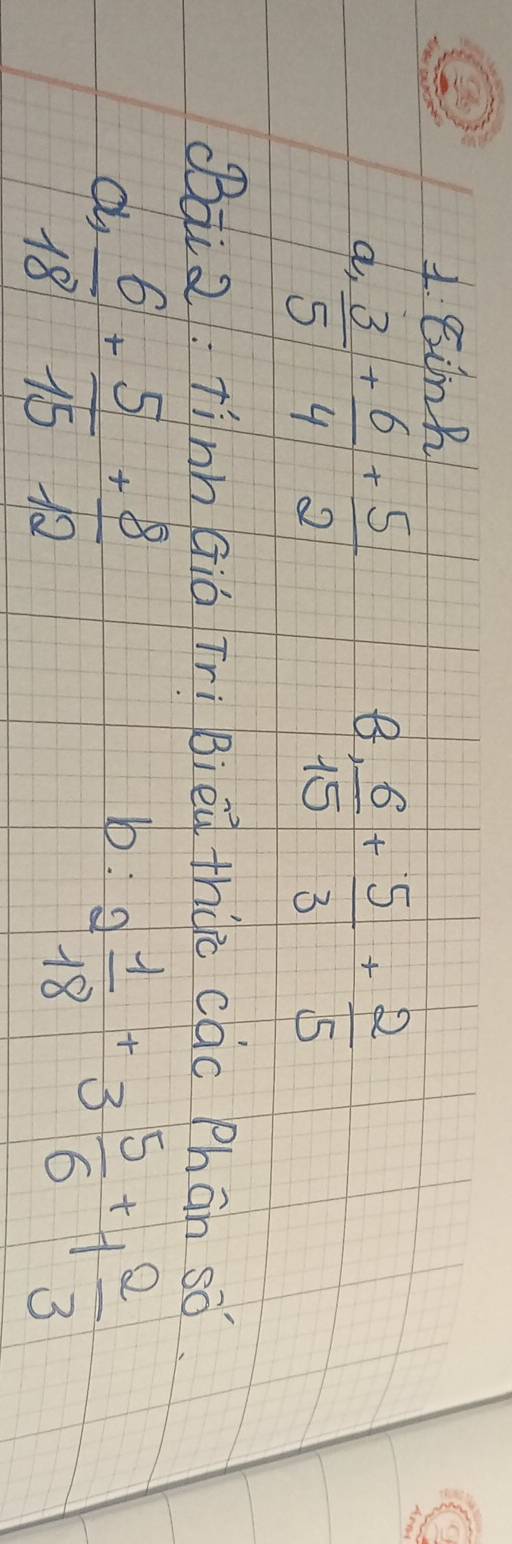 1. Tính
a, 3/5 + 6/4 + 5/2 b, 6/15 + 5/3 + 2/5
Bài 2: Tính Giá Trị Biểu thức các Phân số.
a, 6/18 + 5/15 + 8/12 b: 2 1/18 + 3 5/6 + 1 2/3